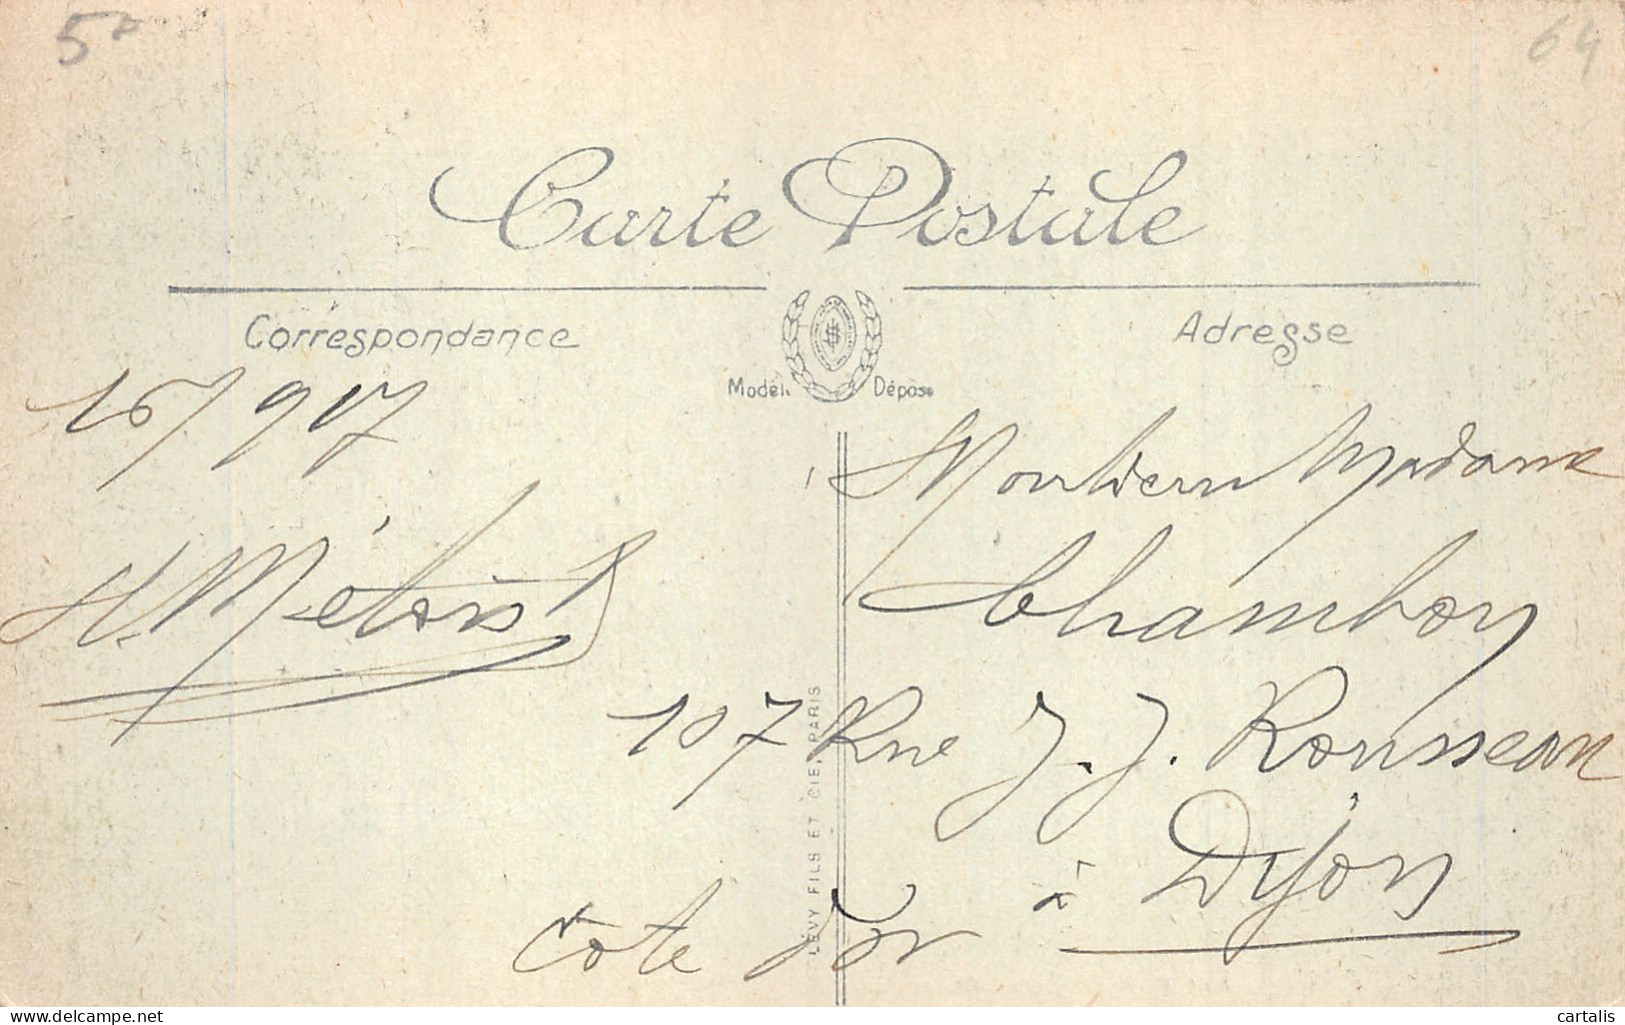 5
64
Carte Postale
Correspondance
Adresse
Modèle Déposé
16/ 917
H. Métois
Monsieur Madame
Chambon
107 Rue J. J. Rousseau
à Dijon
Côte d'or
LÉVY FILS ET CIE, PARIS
www.delcampe.net
cartalis